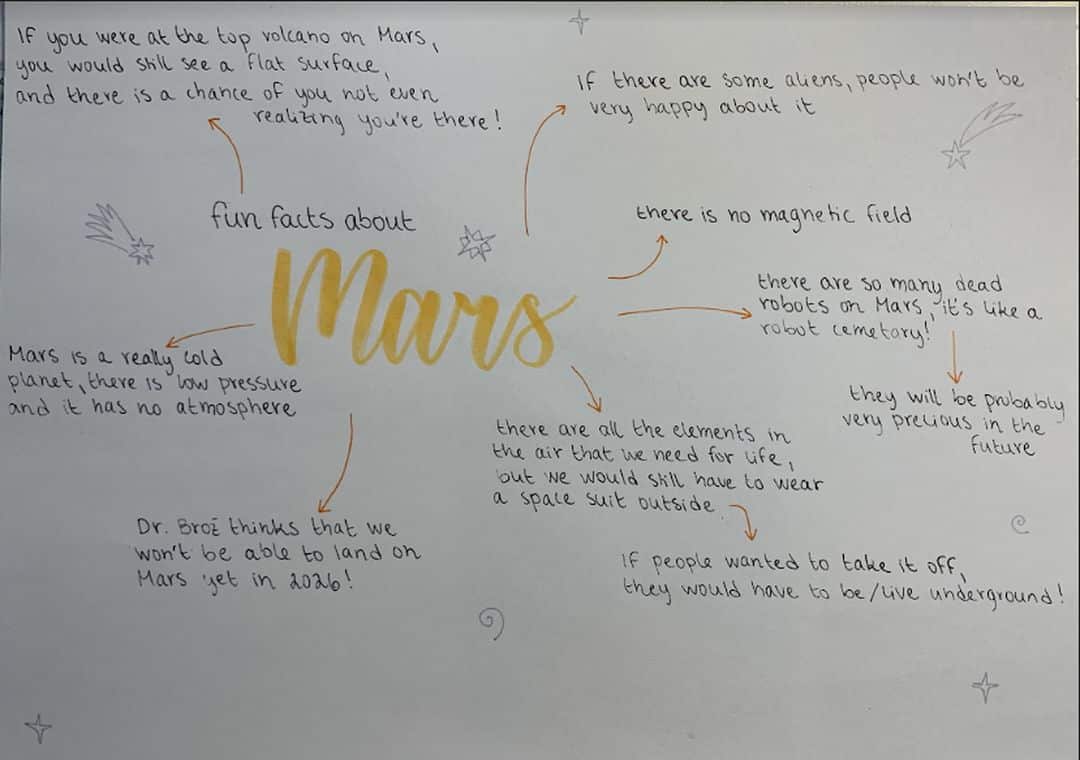 If you were at the top volcano on Mars,
you would still see a flat surface,
and there is a chance of you not even
realizing you're there!
If there are some aliens, people won't be
very happy about it
fun facts about
Mars
there is no magnetic field
there are so many dead
robots on Mars, it's like a
robot cemetary!
they will be probably
very precious in the
future
Mars is a really cold
planet, there is low pressure
and it has no atmosphere
there are all the elements in
the air that we need for life,
but we would still have to wear
a space suit outside
If people wanted to take it off,
they would have to be/live underground!
Dr. Brož thinks that we
won't be able to land on
Mars yet in 2026!